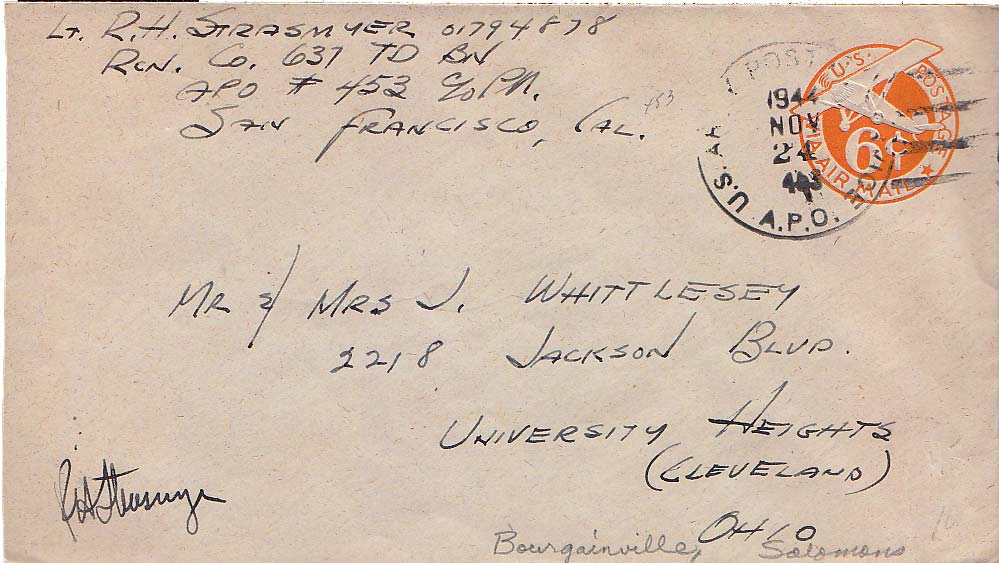 Lt. R.H. Strasmyer 01794878
Rcn. Co. 637 TD Bn
APO # 453 c/o P.M.
San Francisco, Cal.
453
1944
NOV
24
U.S. A
POST
A.P.O.
U.S. POSTAGE
6¢
VIA AIR MAIL
Mr & Mrs J. Whittlesey
2218 Jackson Blvd.
University Heights
(Cleveland)
Ohio
RHStrasmyer
Bourgainville, Solomons
10